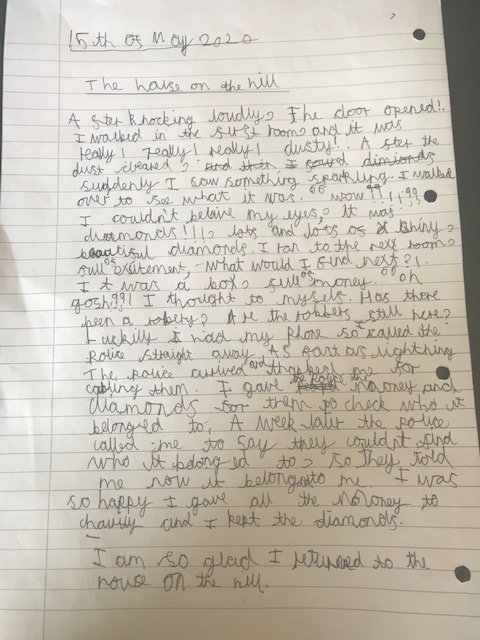 15th of May 2020
The house on the hill
After knocking loudly, The door opened!.
I walked in the first room, and it was
really! really! really! dusty!. After the
dust cleared, and then I found dimionds
suddenly I saw something sparkling. I walked
over to see what it was. "wow!!!!!"
I couldn't belaive my eyes, It was
diamonds!!!, lots and lots of shiny,
beautiful diamonds. I ran to the next room,
full of exsitement, - what would I find next?!
I it was a box, full of money. "oh
gosh!!"! I thought to myself. Has there
been a robbery? Are the robbers still here?
Luckilly I had my phone so I called the
Police straight away. As fast as lightning
The police arrived and thanked me for
calling them. I gave the police the money and
diamonds for them to check who it
belonged to, A week later the police
called me to say they couldnt find
who it belonged to, so they told
me now it belongs to me. I was
so happy I gave all the money to
charity and I kept the diamonds.
I am so glad I returned to the
house on the hill.